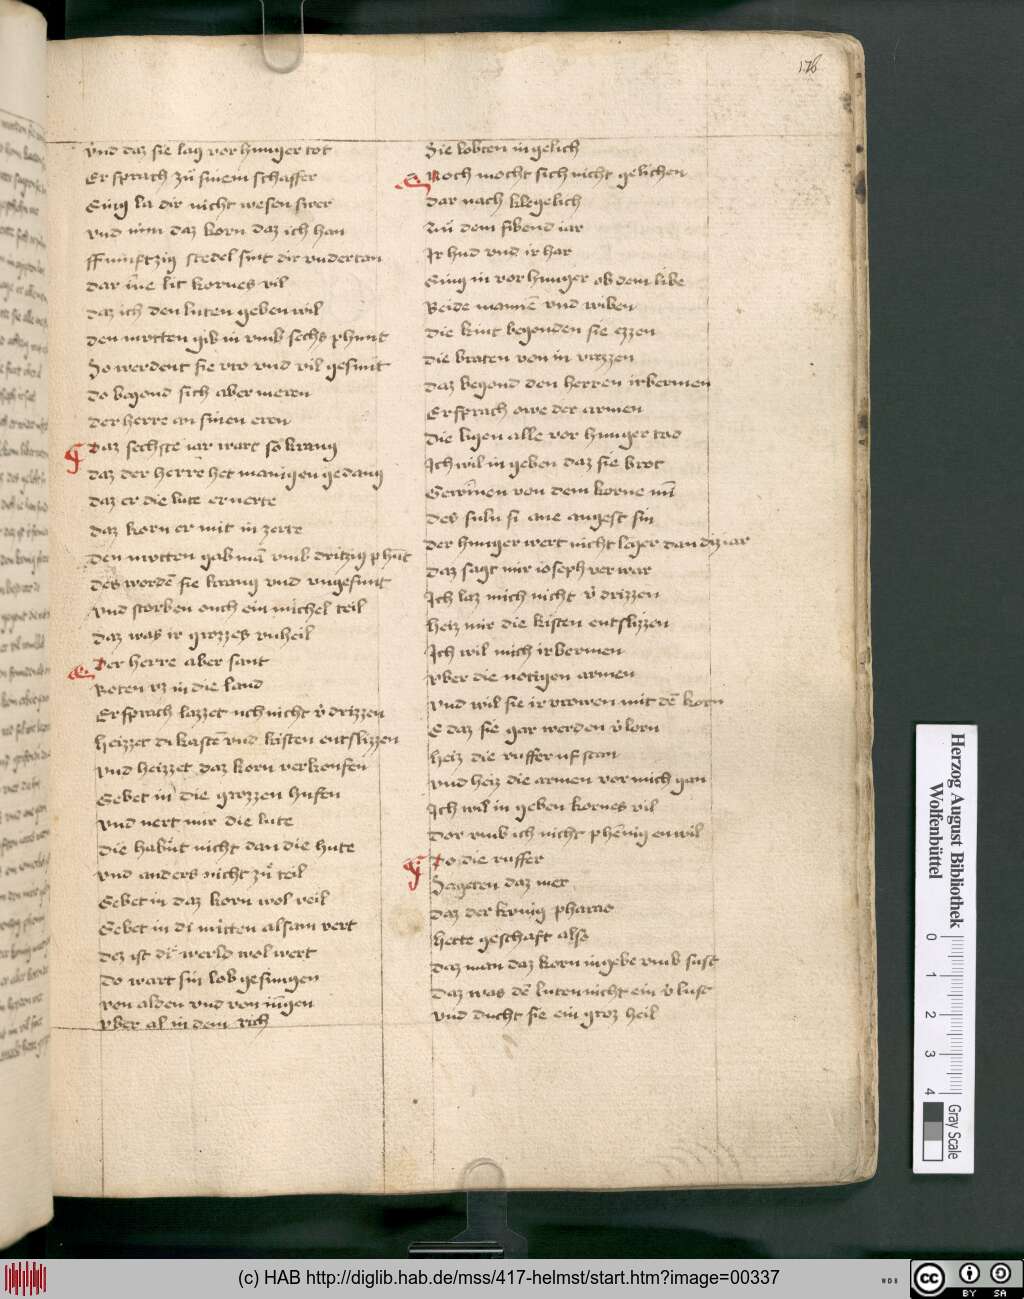 176
vnd daz sie lag vor hunger tot
Er sprach zů sinem schaffer
Eing la dir nicht wesen swer
vnd nim daz korn daz ich han
ffumftzig stedel sint dir vndertan
dar ĩne lit kornes vil
daz ich den luten geben wil
den mutten gib in vmb sechs phunt
So werdent sie vro vnd vil gesunt
do begond sich aber meren
der herre an sinen eren
Daz sechste iar wart so krang
daz der herre het manigen gedang
daz er die lute ernerte
daz korn er mit in zerte
den mutten gab mã vmb dritzig phũt
des wordẽ sie krang vnd vngesunt
vnd storben ouch ein michel teil
daz was ir grozzes vnheil
Der herre aber sant
Boten vz in die land
Er sprach lazzet uch nicht v̓drizzen
heizzet di kastẽ vnd kisten entslizzen
vnd heizzet daz korn verkoufen
Gebet in die grozzen hufen
vnd nert mir die lute
die habũt nicht dan die hute
vnd anders nicht zů teil
Gebet in daz korn wol veil
Gebet in di mutten alsam vert
dez ist di werld wol wert
do wart sin lob gesungen
von alden vnd von iũgen
vber al in dem rich
Sie lobten in gelich
Noch mocht sich nicht gelichen
dar nach klegelich
Zů dem sibend iar
Ir hud vnd ir har
Ging in vor hunger ob dem libe
Beide mannẽ vnd wiben
die kint begonden sie ezzen
die braten von in vrezzen
daz begond den herren irbermen
Er sprach owe der armen
die ligen alle vor hunger tod
Ich wil in geben daz sie brot
Gewĩnen von dem korne mĩ
des suln si ane angest sin
der hunger wert nicht leger dan diz iar
daz sagt mir ioseph ver war
Ich laz mich nicht v̓drizzen
heiz mir die kisten entslizzen
Ich wil mich irbermen
vber die notigen armen
vnd wil sie irvrowen mit dẽ korn
E daz sie gar werden v̓lorn
heiz die ruffer uf stan
vnd heiz die armen vor mich gan
Ich wil in geben kornes vil
dor vmb ich nicht phẽnig enwil
Do die ruffer
Sageten daz mer
daz der kunig pharao
hette geschaft also
daz man daz korn in gebe vmb sust
daz was dẽ luten nicht ein v̓lust
vnd ducht sie ein groz heil
Herzog August Bibliothek
Wolfenbüttel
0 1 2 3 4
Gray Scale
(c) HAB http://diglib.hab.de/mss/417-helmst/start.htm?image=00337
WDB
cc BY SA